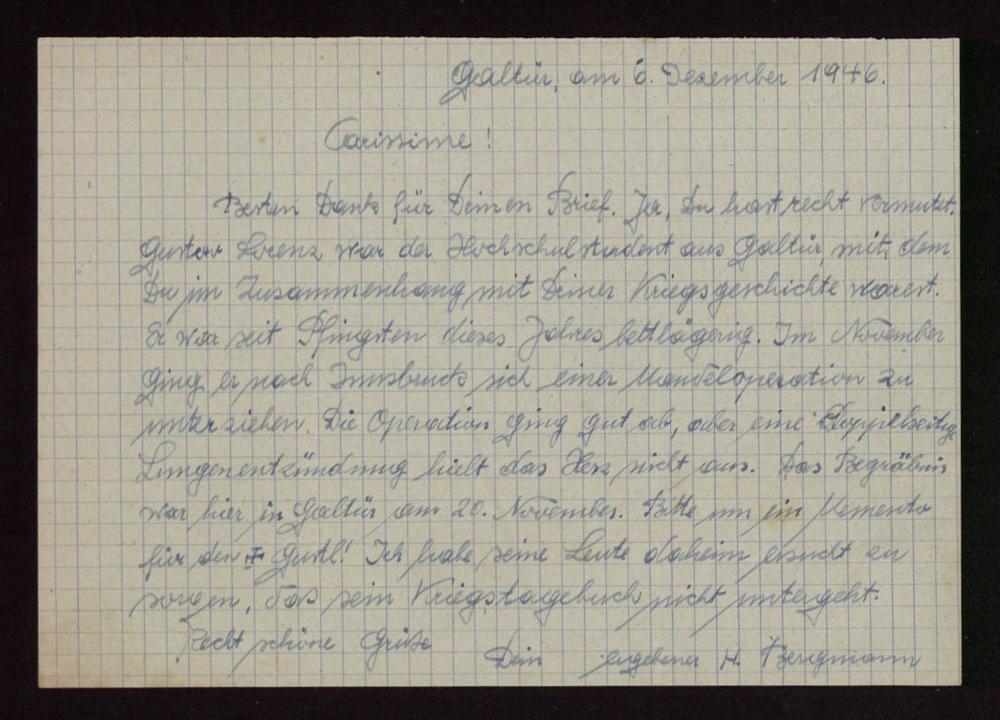 Galtür, am 6. Dezember 1946.
Carissime!
Besten Dank für Deinen Brief. Ja, Du hast recht vermutet.
Gustav Lorenz war der Hochschulstudent aus Galtür, mit dem
Du im Zusammenhang mit Deiner Kriegsgeschichte warest.
Er war seit Pfingsten dieses Jahres bettlägerig. Im November
ging er nach Innsbruck sich einer Mandeloperation zu
unterziehen. Die Operation ging gut ab, aber eine doppelseitige
Lungenentzündung hielt das Herz nicht aus. Das Begräbnis
war hier in Galtür am 20. November. Bitte um ein Memento
für den Gustl! Ich habe seine Leute daheim ersucht zu
sorgen, das sein Kriegstagebuch nicht untergeht.
Recht schöne Grüße
Dein ergebener H. Bergmann